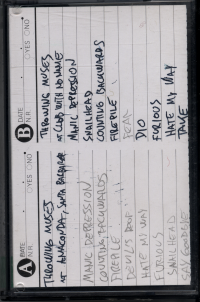 A
DATE
N.R.
YES NO
THROWING MUSES
AT ANACONDA, SANTA BARBARA
MANIC DEPRESSION
COUNTING BACKWARDS
FIREPILE
DEVIL'S ROOF
HATE MY WAY
FURIOUS
SNAILHEAD
SAY GOODBYE
B
DATE
N.R.
YES NO
THROWING MUSES
AT CLUB WITH NO NAME
MANIC DEPRESSION
SNAILHEAD
COUNTING BACKWARDS
FIREPILE
DIO
FURIOUS
HATE MY WAY